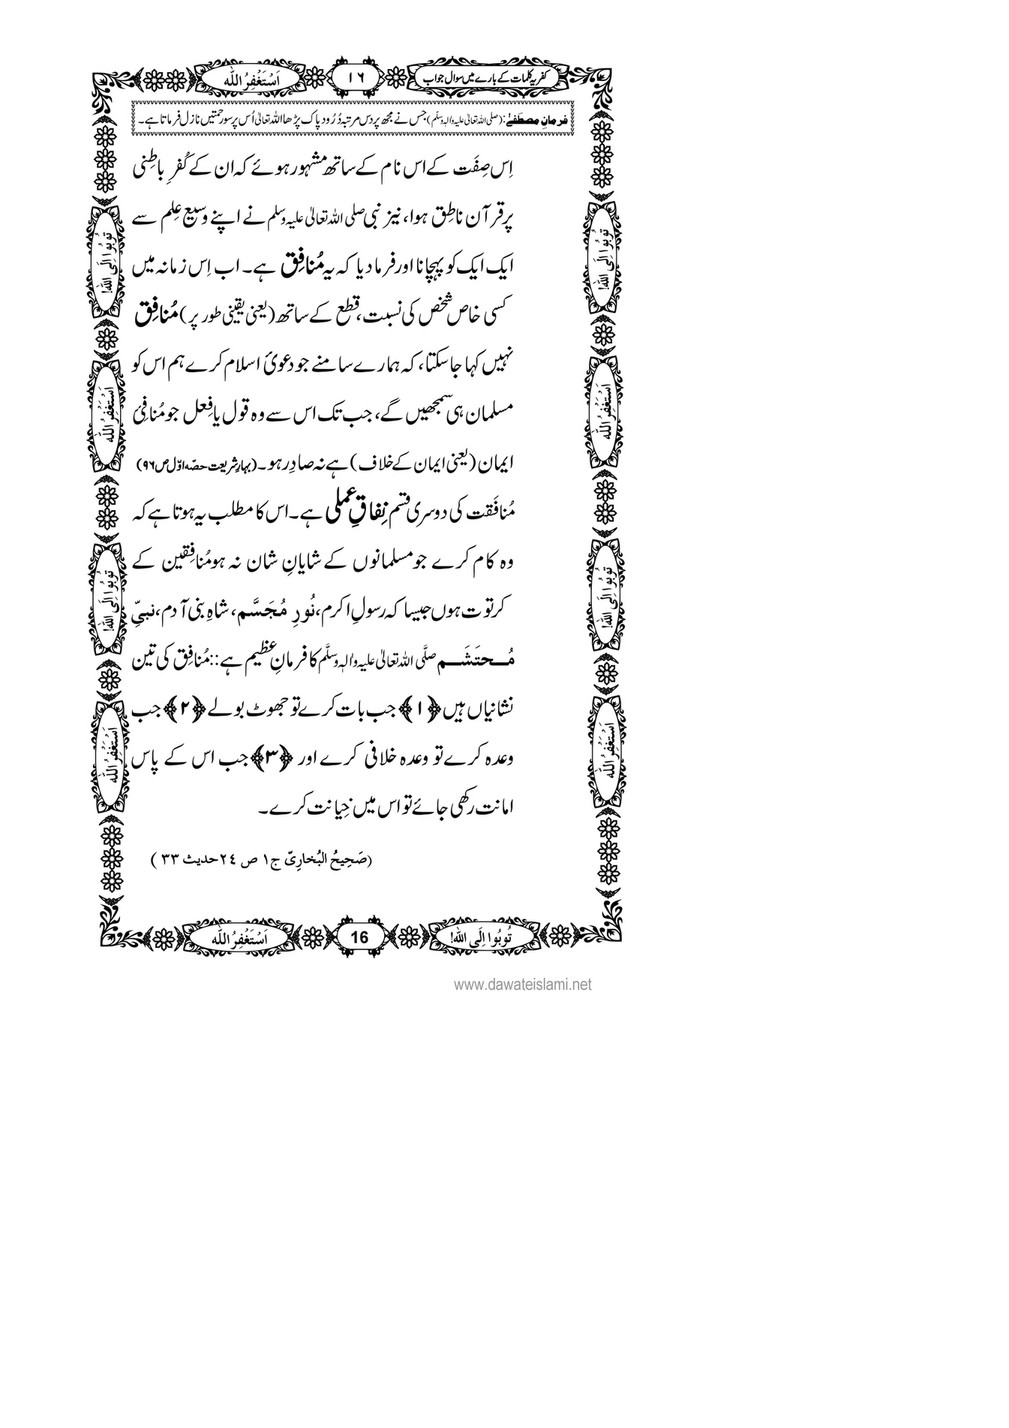 کفریہ کلمات کے بارے میں سوال جواب
١٦
اَسْتَغْفِرُ اللّٰه
فرمانِ مصطَفٰے: (صلی اللہ تعالیٰ علیہ والہ وسلّم) جس نے مجھ پر دس مرتبہ دُرُود پاک پڑھا اللہ تعالیٰ اُس پر سو رحمتیں نازل فرماتا ہے۔
اِس صِفَت کے اس نام کے ساتھ مشہور ہوئے کہ ان کے کُفرِ باطِنی
پر قرآن ناطِق ہوا، نیز نبی صلی اللہ تعالیٰ علیہ وسلم نے اپنے وسیع عِلم سے
ایک ایک کو پہچانا اور فرما دیا کہ یہ مُنافِق ہے۔ اب اِس زمانہ میں
کسی خاص شخص کی نسبت، قطع کے ساتھ (یعنی یقینی طور پر) مُنافِق
نہیں کہا جاسکتا، کہ ہمارے سامنے جو دعویٔ اسلام کرے ہم اس کو
مسلمان ہی سمجھیں گے، جب تک اس سے وہ قول یا فِعل جو مُنافیِٔ
ایمان (یعنی ایمان کے خلاف) ہے نہ صادِر ہو۔ (بہارِ شریعت حصّہ اوّل ص۹۶)
مُنافَقت کی دوسری قسم نِفاقِ عملی ہے۔ اس کا مطلب یہ ہوتا ہے کہ
وہ کام کرے جو مسلمانوں کے شایانِ شان نہ ہو مُنافِقین کے
کرتوت ہوں جیسا کہ رسولِ اکرم، نُورِ مُجَسَّم، شاہِ بنی آدم، نبیِّ
مُحتَشَم صلَّی اللہ تعالیٰ علیہ والہٖ وسلَّم کا فرمانِ عظیم ہے:: مُنافِق کی تین
نشانیاں ہیں ﴿١﴾ جب بات کرے تو جھوٹ بولے ﴿٢﴾ جب
وعدہ کرے تو وعدہ خلافی کرے اور ﴿٣﴾ جب اس کے پاس
امانت رکھی جائے تو اس میں خِیانت کرے۔
(صَحِیحُ البُخارِیّ ج١ ص ٢٤ حدیث ٣٣)
تُوبُوا اِلَی اللّٰه!
اَسْتَغْفِرُ اللّٰه
تُوبُوا اِلَی اللّٰه!
اَسْتَغْفِرُ اللّٰه
تُوبُوا اِلَی اللّٰه!
اَسْتَغْفِرُ اللّٰه
تُوبُوا اِلَی اللّٰه!
اَسْتَغْفِرُ اللّٰه
تُوبُوا اِلَی اللّٰه!
16
اَسْتَغْفِرُ اللّٰه
www.dawateislami.net